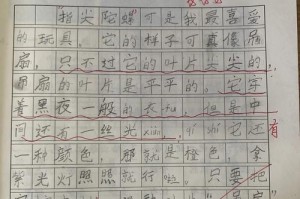 指尖陀螺可是我最喜爱
的玩具，它的样子可真像吊
扇，只不过它的叶片头尖尖的
吊扇的叶片是平平的。它穿
着黑夜一般的大fu，但是中
间还有一丝光xiàn，qí shí它还有
一种颜色，那就是橙色，拿
紫光灯照照就行啦。只要把